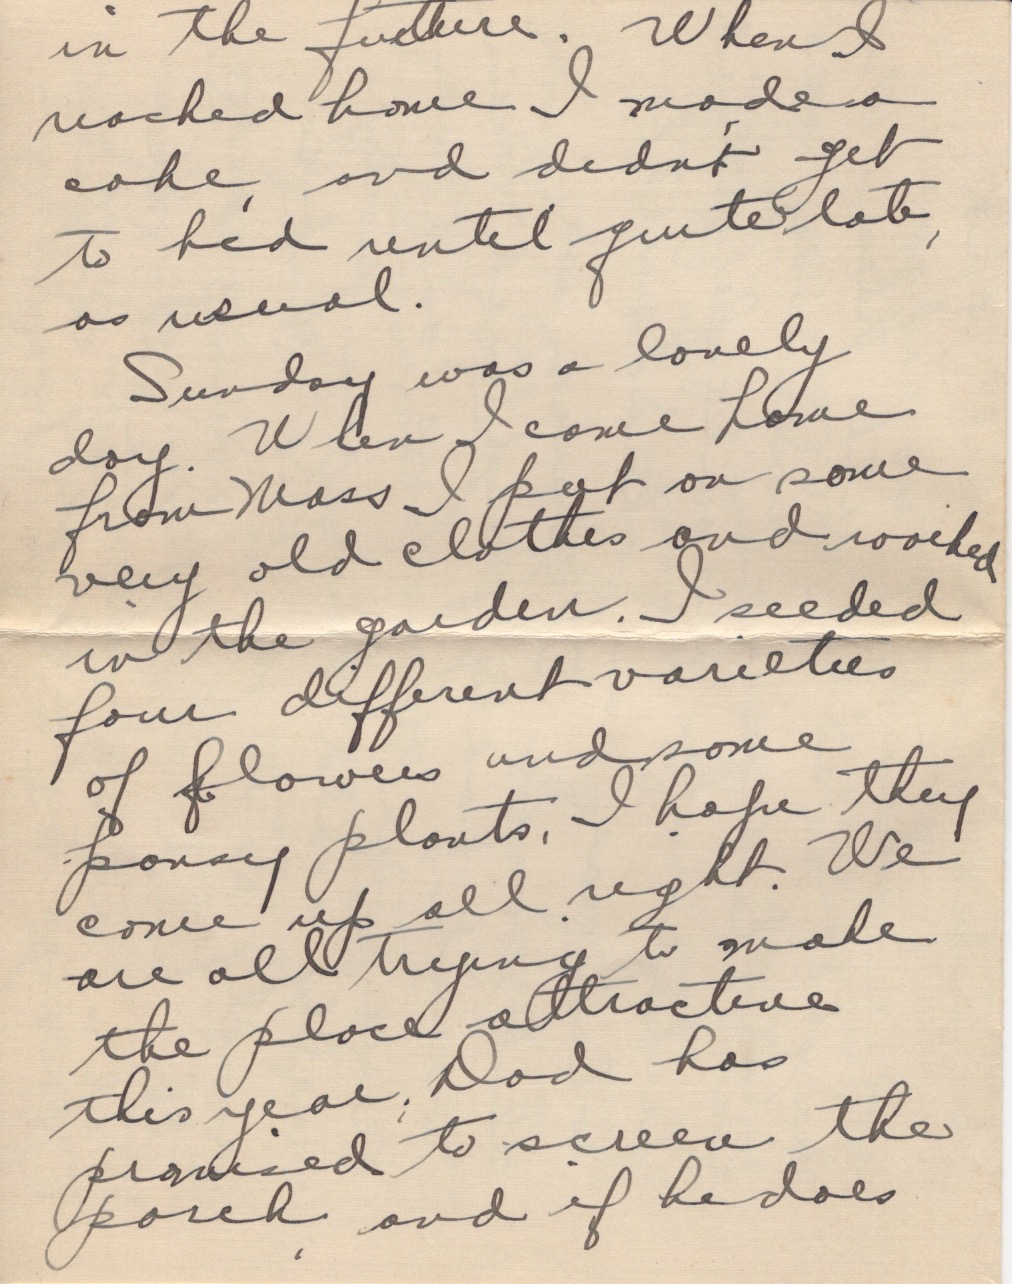 in the future. When I
reached home I made a
cake, and didn't get
to bed until quite late,
as usual.
Sunday was a lovely
day. When I came home
from Mass I put on some
very old clothes and worked
in the garden. I seeded
four different varieties
of flowers and some
pansy plants. I hope they
come up all right. We
are all trying to make
the place attractive
this year. Dad has
promised to screen the
porch, and if he does